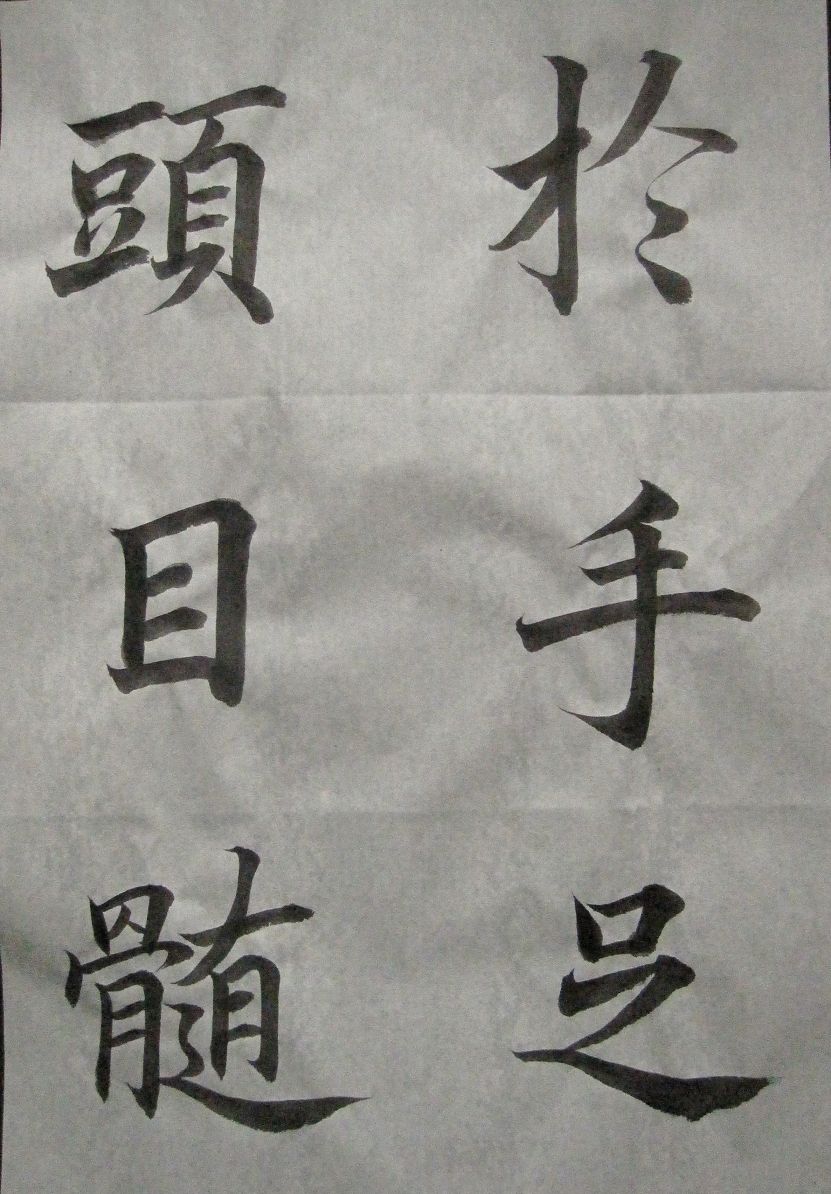 於手足
頭目髄